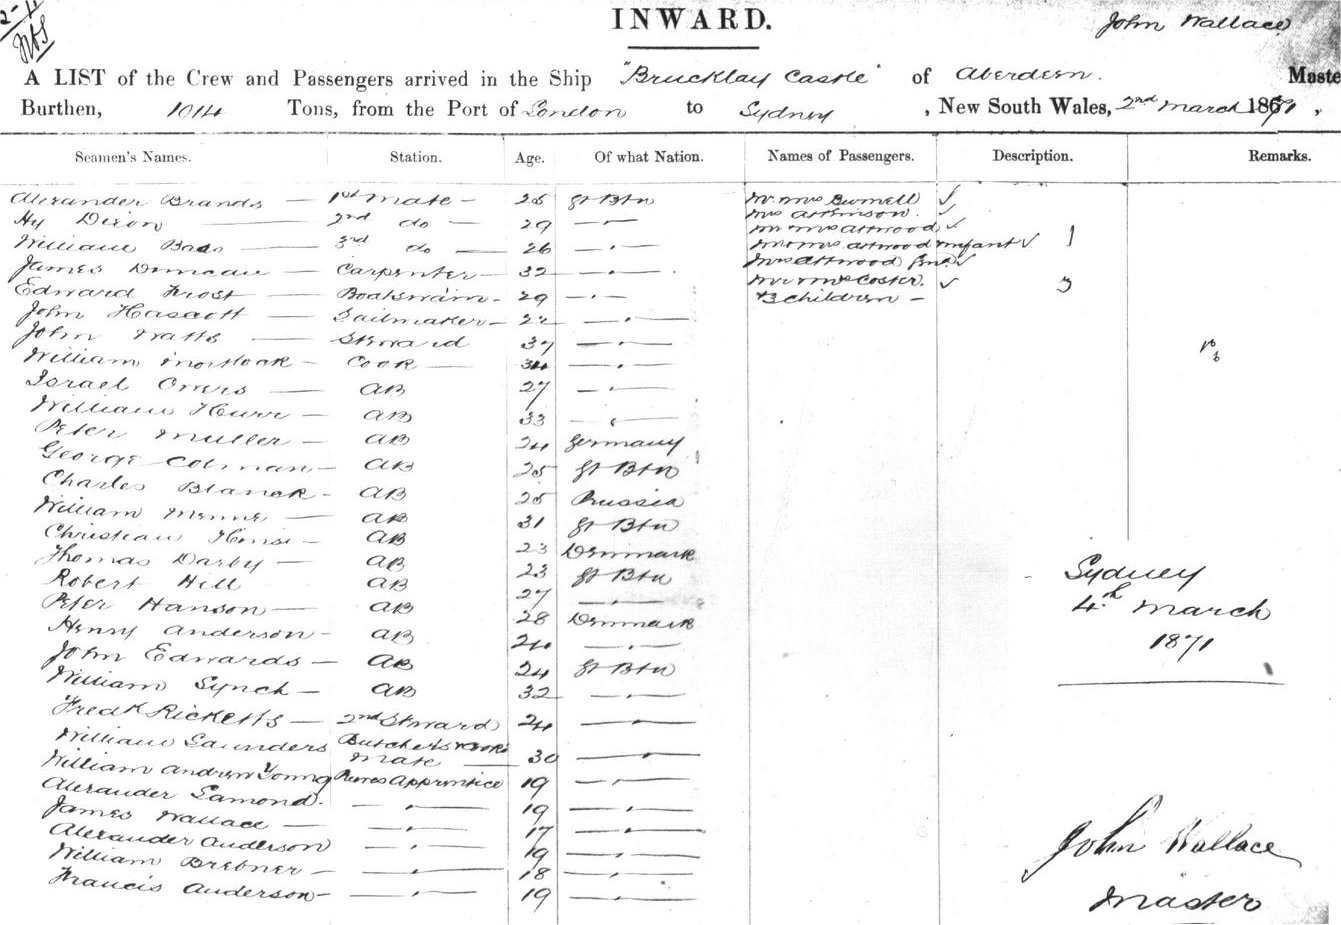 INWARD.
John Wallace
A LIST of the Crew and Passengers arrived in the Ship "Brucklay Castle" of Aberdeen. Maste
Burthen, 1014 Tons, from the Port of London to Sydney, New South Wales, 2nd March 1871,
Seamen's Names. Station. Age. Of what Nation. Names of Passengers. Description. Remarks.
Alexander Brands — 1st Mate — 25 Gt Btn Mr Mrs Burnell ✓
Hy Dixon — 2nd do — 29 — " — Mrs Attkinson. ✓
William Bass — 3rd do — 26 — " — Mr Mrs Attwood ✓
James Duncan — Carpenter — 32 — " — Mr & Mrs Attwood Infant ✓ 1
Edward Frost — Boatswain — 29 — " — Mrs Attwood ✓
John Hascott — Sailmaker — — " — Mr & Mrs Coster. ✓ 3
John Watts — Steward 37 — " — 3 children —
William Mortlock — Cook — 34 — " —
Israel Owers — AB 27 — " —
William Hurr — AB 33 — " —
Peter Muller — AB 24 Germany
George Colman — AB 25 Gt Btn
Charles Blanck — AB 25 Russia
William Menne — AB 31 Gt Btn
Christian — AB 23 Denmark
Thomas Darby — AB 23 Gt Btn
Robert Hill AB 27 — " —
Peter Hanson — AB 28 Denmark
Henry Anderson — AB 24 — " —
John Edwards — AB 24 Gt Btn
William Lynch — AB 32 — " —
Fredk Ricketts — 2nd Steward 24 — " —
William Saunders Butcher & Cooks
Mate — 30 — " —
William Andrew Young Apprentice 19 — " —
Alexander Lamond. — " — 19 — " —
James Wallace — — " — 17 — " —
Alexander Anderson — " — 19 — " —
William Brebner — — " — 18 — " —
Francis Anderson — — " — 19 — " —
Sydney
4th March
1871
John Wallace
Master